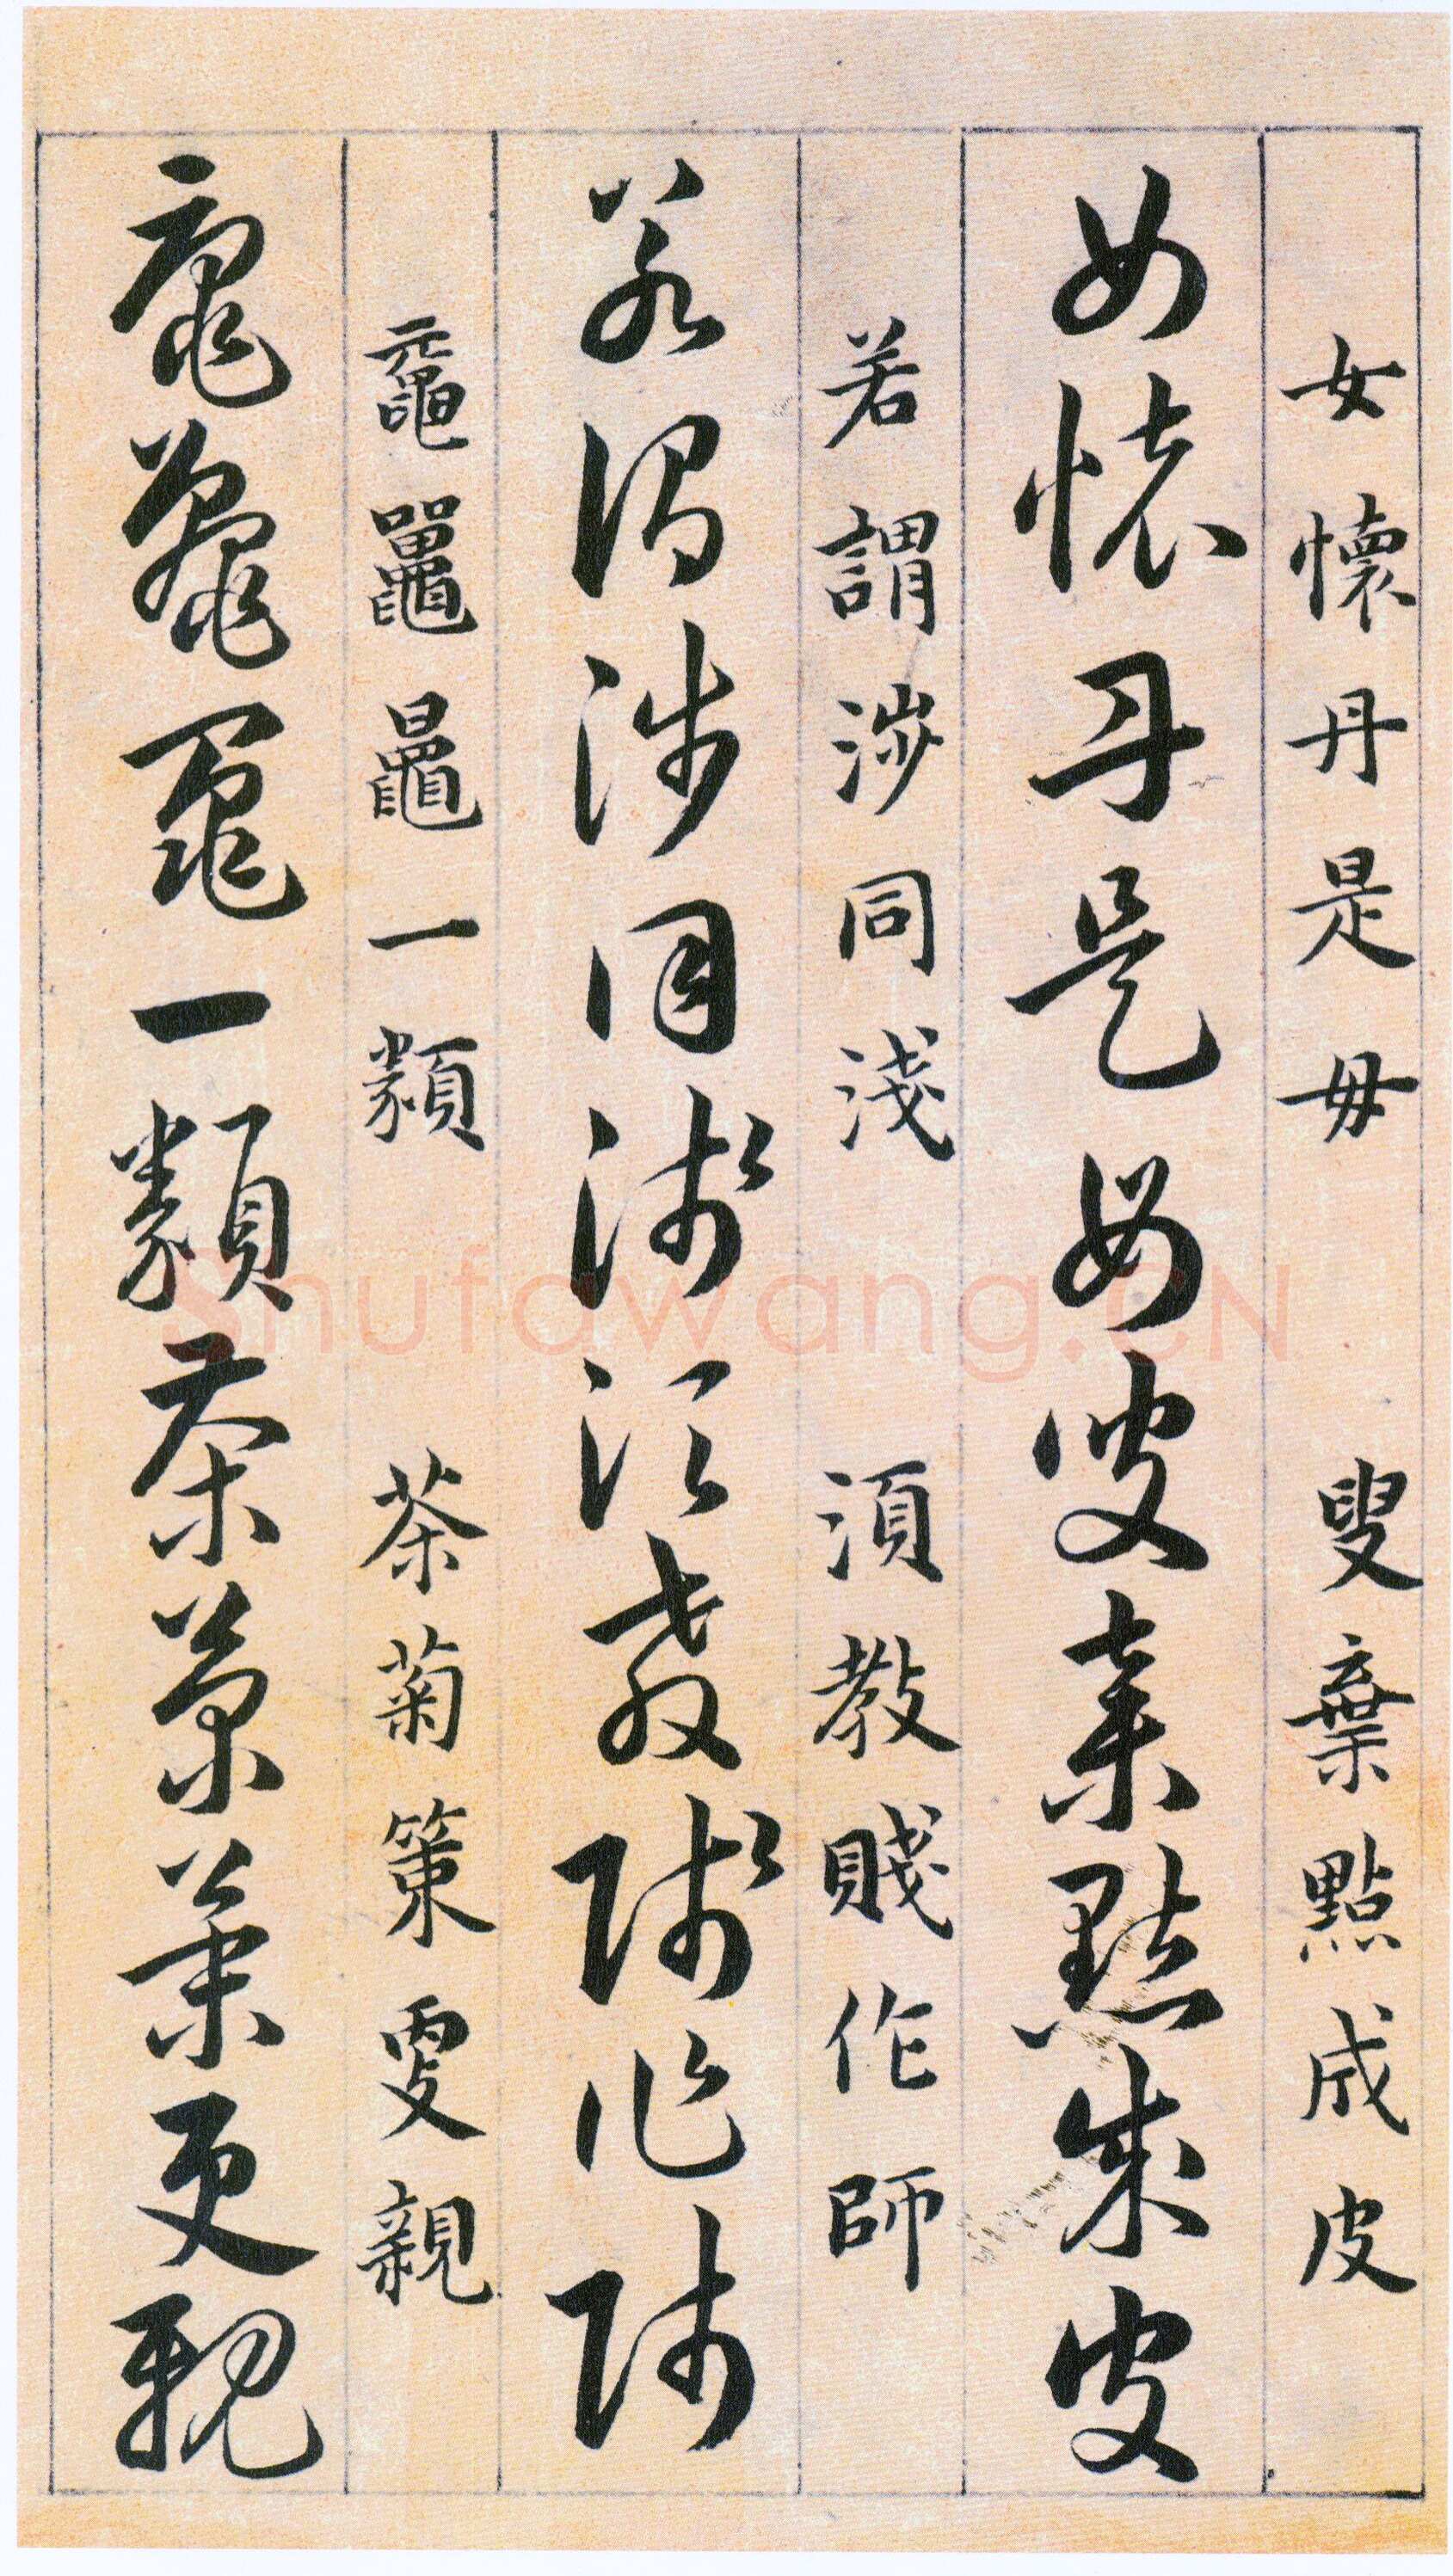 女懷丹是母 叟棄點成皮
女懷丹是母叟棄點成皮
若謂涉同淺 須教賤作師
若謂涉同淺須教賤作師
黿鼉鼂一類 茶菊策更親
黿鼉鼂一類茶菊策更親
Shufawang.CN